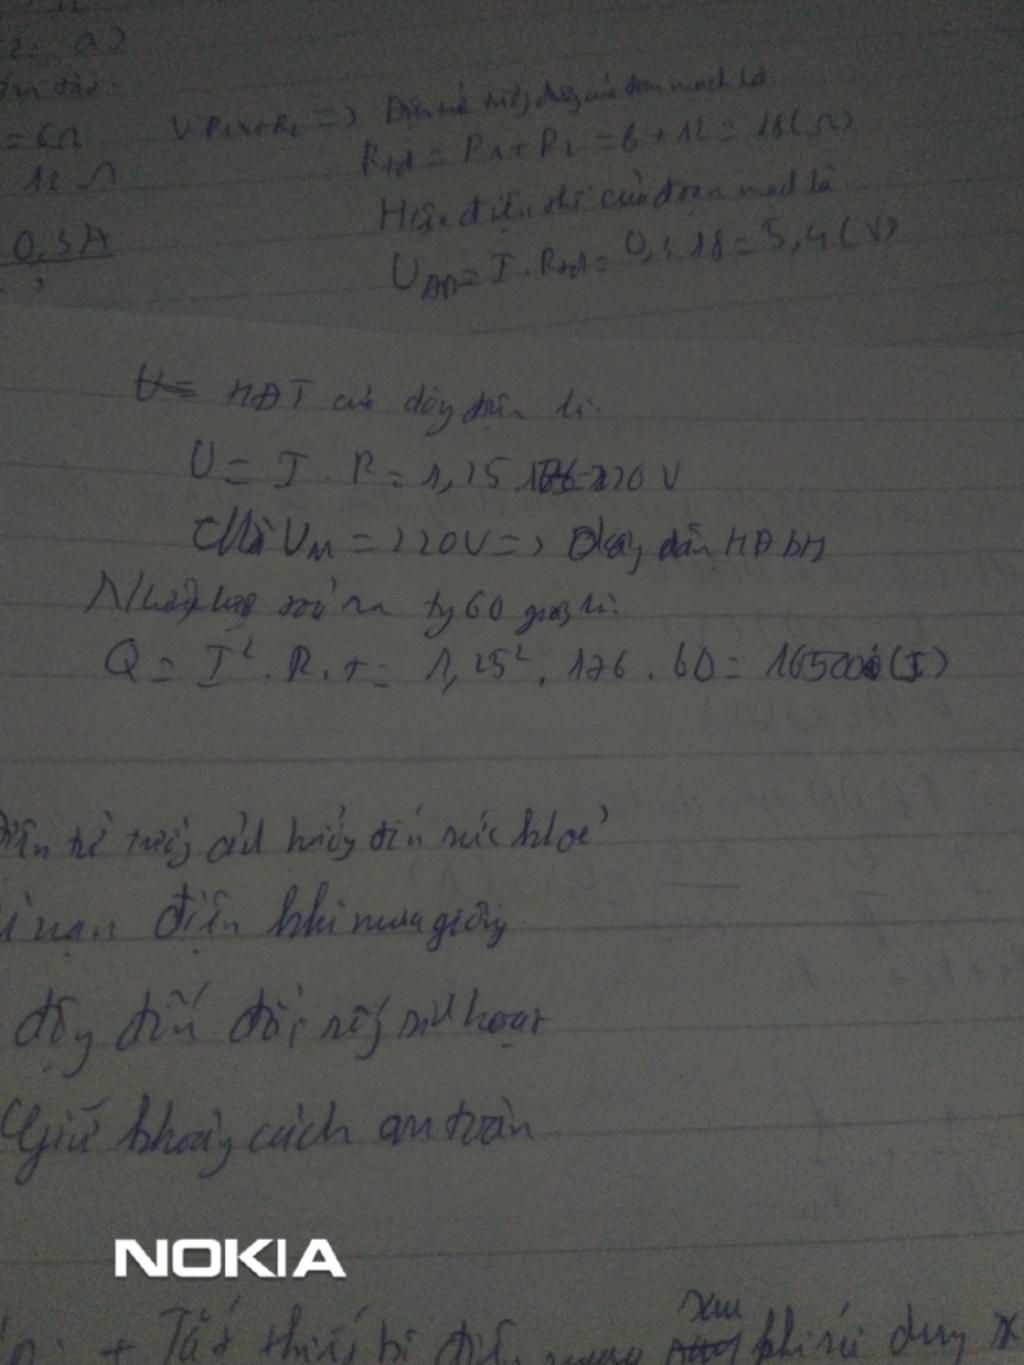 a)
= 6Ω
Vì R1 nt R2 => Điện trở tương đương của đoạn mạch là
12 Ω
Rtđ = R1 + R2 = 6 + 12 = 18 (Ω)
0,3A
Hiệu điện thế của đoạn mạch là
UAB = I . Rtđ = 0,3.18 = 5,4 (V)
HĐT của dây điện là:
U = I . R = 1,25.176 = 220 V
Mà UM = 220V => dây dẫn HĐ bt
Nhiệt lượng toả ra 60 giây là:
Q = I². R. t = 1,25². 176 . 60 = 16500 (J)
Điện từ trường ảnh hưởng đến sức khoẻ
nạn điện khi mưa giông
động đến đời sống sinh hoạt
Giữ khoảng cách an toàn
NOKIA
+ Tắt thiết bị điện sau khi sử dụng